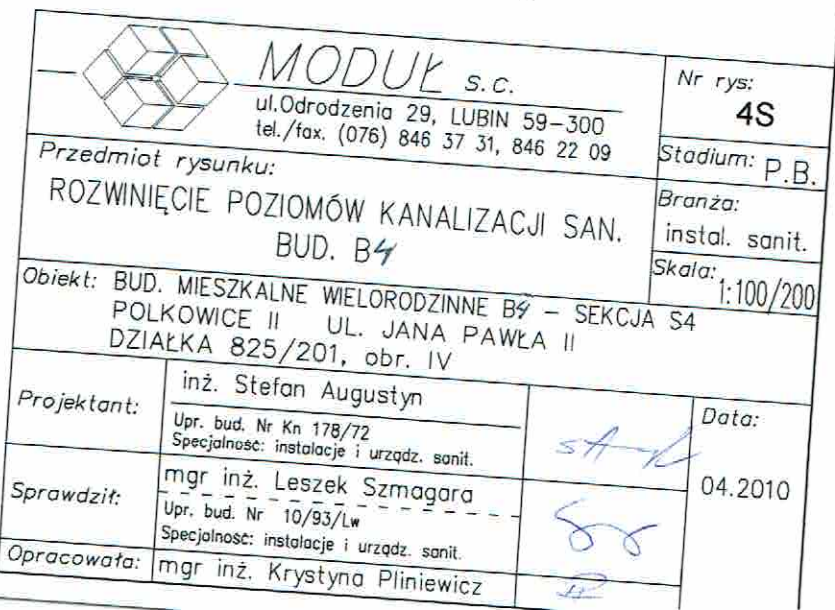 MODUŁ S.C.
ul.Odrodzenia 29, LUBIN 59-300
tel./fax. (076) 846 37 31, 846 22 09
Nr rys:
4S
Stadium: P.B.
Przedmiot rysunku:
ROZWINIĘCIE POZIOMÓW KANALIZACJI SAN.
BUD. B4
Branża:
instal. sanit.
Skala: 1:100/200
Obiekt: BUD. MIESZKALNE WIELORODZINNE B4 - SEKCJA S4
POLKOWICE II UL. JANA PAWŁA II
DZIAŁKA 825/201, obr. IV
Projektant:
inż. Stefan Augustyn
Upr. bud. Nr Kn 178/72
Specjalność: instalacje i urządz. sanit.
Data:
04.2010
Sprawdził:
mgr inż. Leszek Szmagara
Upr. bud. Nr 10/93/Lw
Specjalność: instalacje i urządz. sanit.
Opracowała: mgr inż. Krystyna Pliniewicz